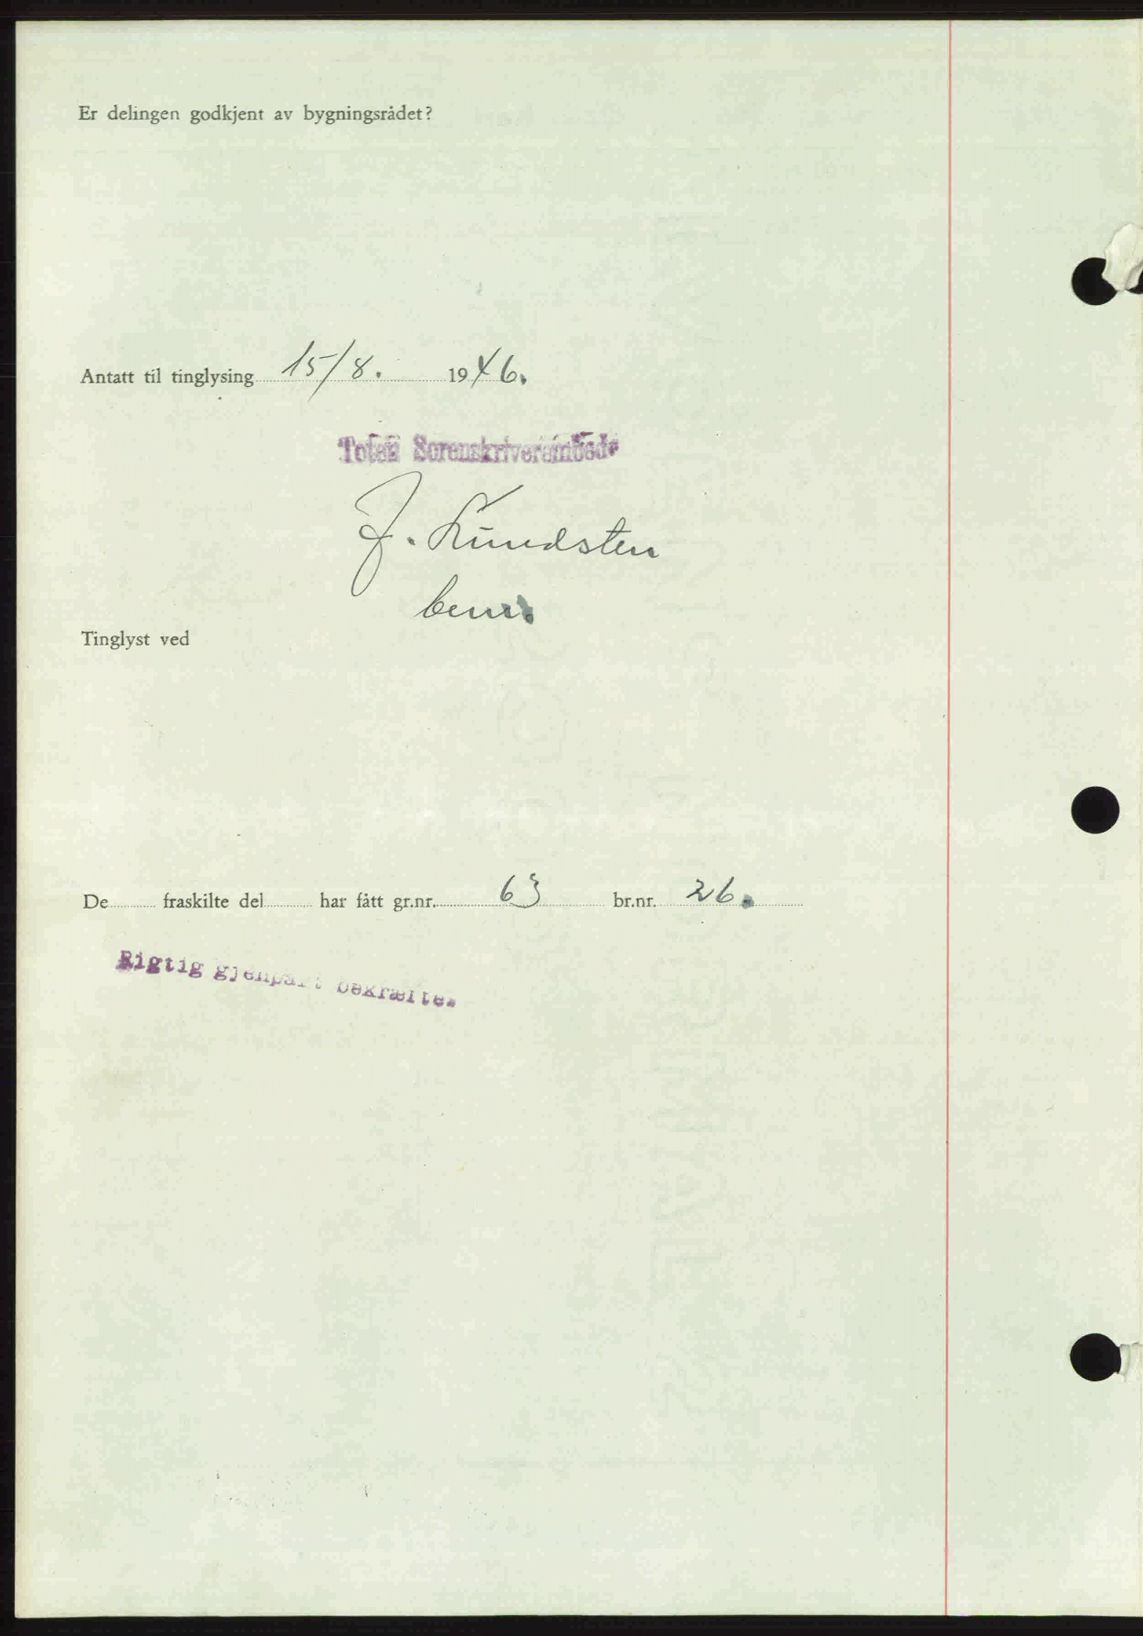 Er delingen godkjent av bygningsrådet?
Antatt til tinglysing 15/8. 1946.
Toten Sorenskriverembede
J. Lundsten
bem.
Tinglyst ved
De fraskilte del har fått gr.nr. 63 br.nr. 26.
Rigtig gjenpart bekræftes